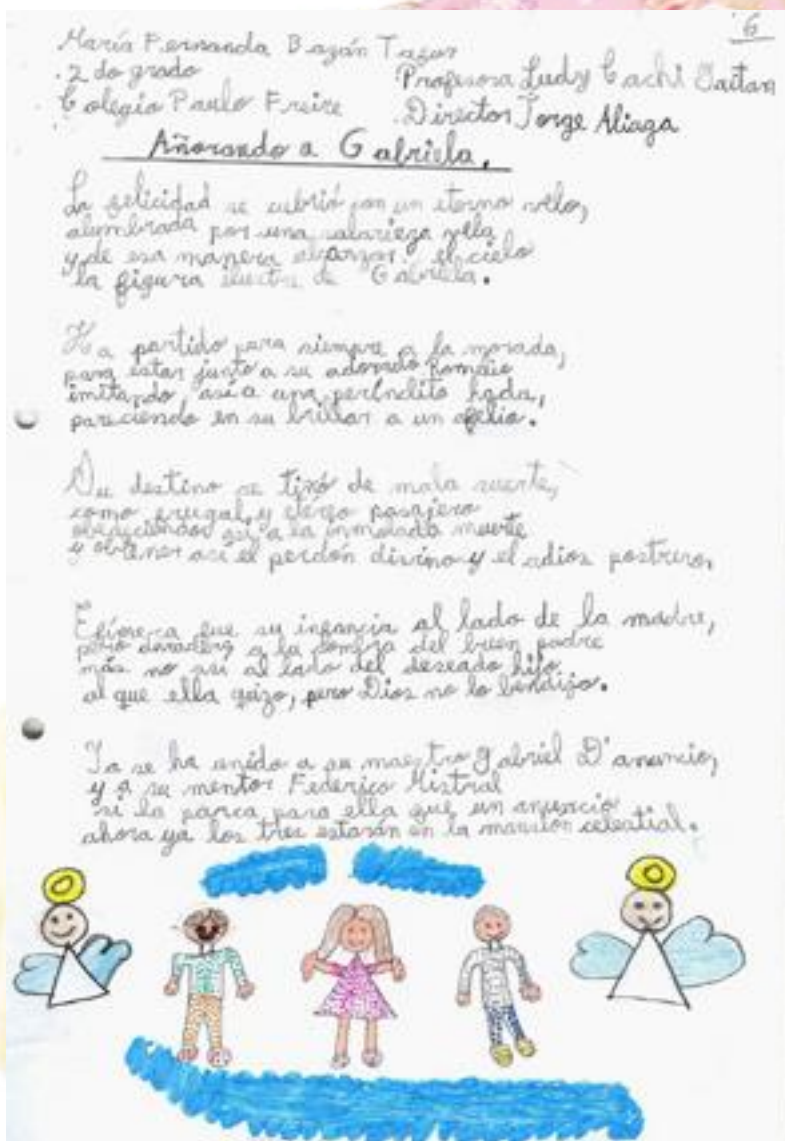 6
María Fernanda Bazán
2do grado
Profesora Ludy Cachi Gaitan
Colegio Paulo Freire
Director Jorge Aliaga
Añorando a Gabriela,
La felicidad se cubrió con un eterno velo,
alumbrada por una vela
y de esa manera alcanzar el cielo
la figura ilustre de Gabriela.
Ha partido para siempre a la morada,
para estar junto a su adorado Romelio
imitando, así a una hada,
pareciendo en su brillar a un afelio.
Su destino se tiñó de mala suerte,
como frugal, y etéreo pasajero
así, a la inmolada muerte
y obtener así el perdón divino y el adios postrero,
Efímera fue su infancia al lado de la madre,
pero duradera a la sombra del buen padre
más no así al lado del deseado hijo
al que ella quizo, pero Dios no lo bendijo.
Ya se ha unido a su maestro gabriel D'anuncio,
y a su mentor Federico Mistral
si la parca para ella fue un anuncio
ahora ya los tres estarán en la mansión celestial.